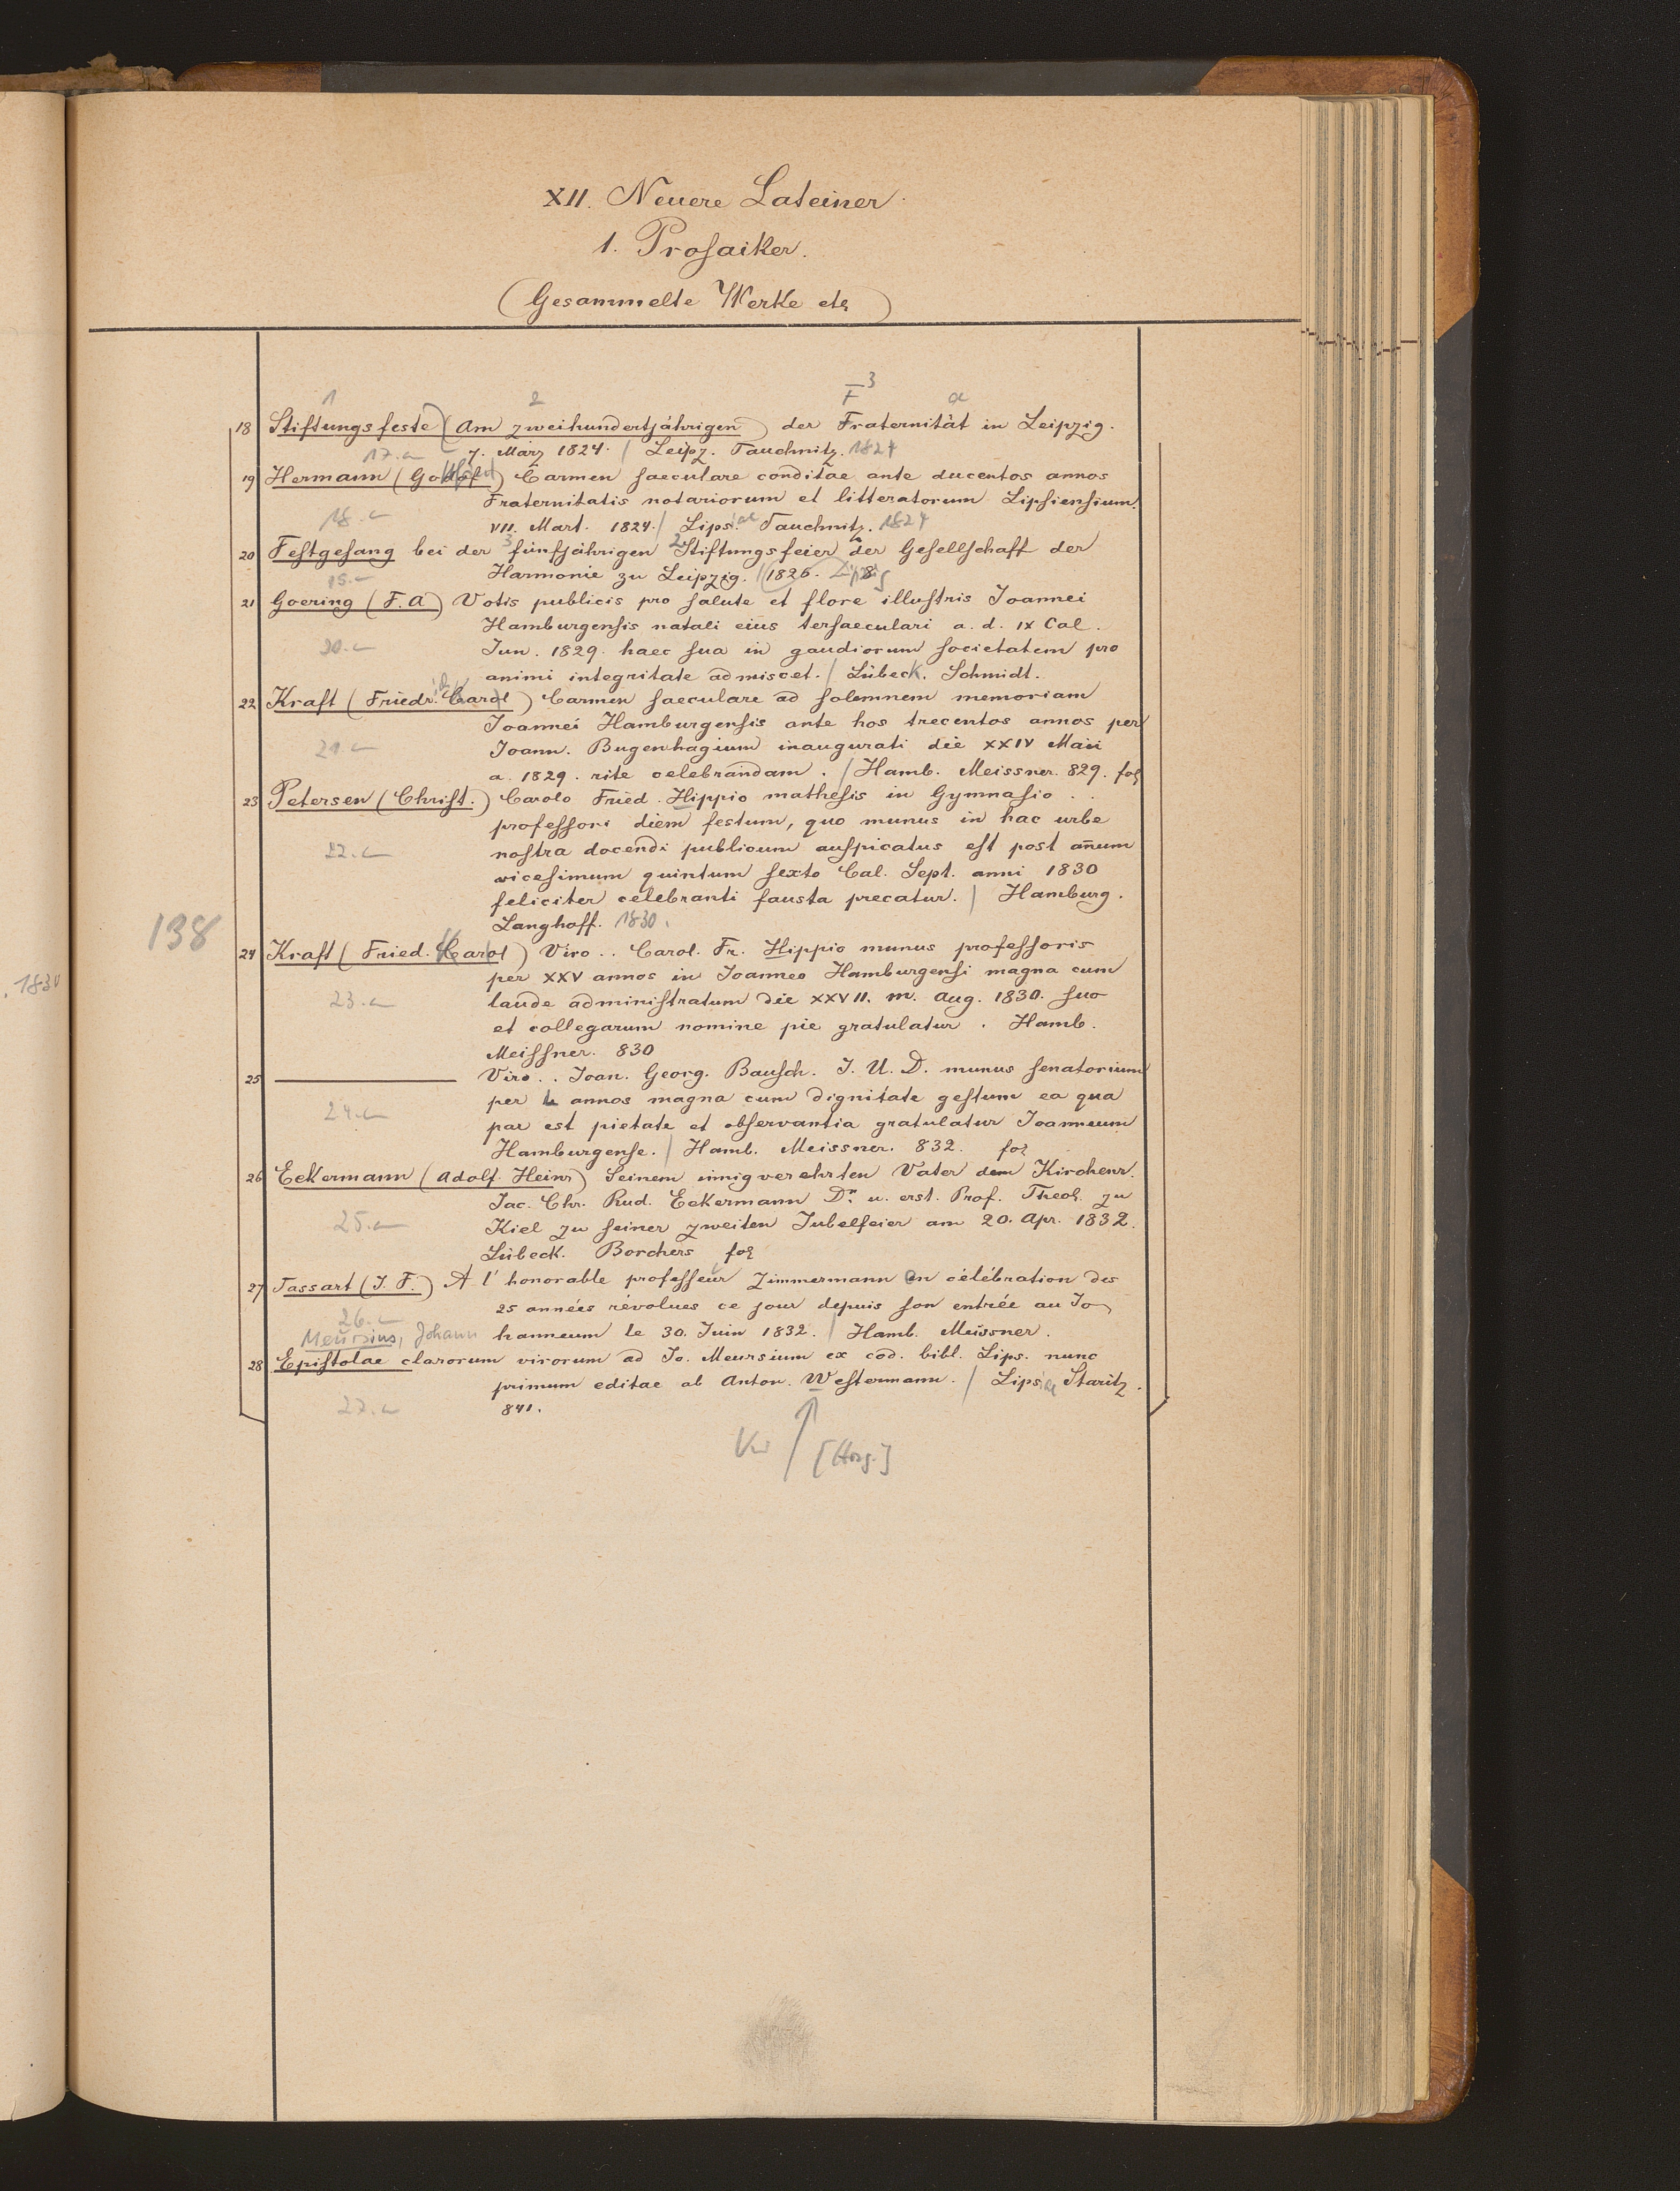 XII. Neuere Lateiner
1. Prosaiker.
(Gesammelte Werke etc)
1 2 F 3 a
18 Stiftungsfeste (Am zweihundertjährigen) der Fraternität in Leipzig.
17. 7. März 1824. / Leipz. Tauchnitz. 1824
19 Hermann (Gottfried) Carmen saeculare conditae ante ducentos annos
Fraternitatis notariorum et litteratorum Lipsiensium.
18. VII. Mart. 1824. / Lipsiae Tauchnitz. 1824
20 Festgesang bei der 3 fünfjährigen 2 Stiftungsfeier der Gesellschaft der
Harmonie zu Leipzig. / 1826. Leipzig 8
21 Goering (F. A) Votis publicis pro salute et flore illustris Joannei
Hamburgensis natali eius tersaeculari a. d. IX Cal.
20. Jun. 1829. haec sua in gaudiorum societatem pro
animi integritate admiscet. / Lübeck. Schmidt.
22 Kraft (Friedr. Carol) Carmen saeculare ad solemnem memoriam
Joannei Hamburgensis ante hos trecentos annos per
21. Joann. Bugenhagium inaugurati die XXIV Maii
a. 1829. rite celebrandam. / Hamb. Meissner. 829. fol
23 Petersen (Christ.) Carolo Fried. Hippio mathesis in Gymnasio ..
professori diem festum, quo munus in hac urbe
22. nostra docendi publicum auspicatus est post anum
vicesimum quintum sexto Cal. Sept. anni 1830
feliciter celebranti fausta precatur. / Hamburg.
Langhoff. 1830.
138
24 Kraft (Fried. Karl) Viro .. Carol. Fr. Hippio munus professoris
per XXV annos in Joanneo Hamburgensi magna cum
. 1830
23. laude administratum die XXVII. m. Aug. 1830. suo
et collegarum nomine pie gratulatur. Hamb.
Meissner. 830
25 ——— Viro .. Joan. Georg. Bausch. J. U. D. munus senatorium
24. per L annos magna cum dignitate gestum ea qua
par est pietate et observantia gratulatur Joanneum
Hamburgense. / Hamb. Meissner. 832. fol
26 Eckermann (Adolf. Heinr) Seinem innigverehrten Vater dem Kirchenr.
Jac. Chr. Rud. Eckermann Dr. u. erst. Prof. Theol. zu
25. Kiel zu seiner zweiten Jubelfeier am 20. Apr. 1832.
Lübeck. Borchers fol
27 Tassart (J. F.) A l'honorable professeur Zimmermann en célébration des
25 années révolues ce jour depuis son entrée au Jo
26.
Meursius, Johann hanneum le 30. Juin 1832. / Hamb. Meissner.
28 Epistolae clarorum virorum ad Jo. Meursium ex cod. bibl. Lips. nunc
primum editae ab Anton. Westermann. / Lipsiae Staritz.
27. 841.
Vw [Hrsg.]